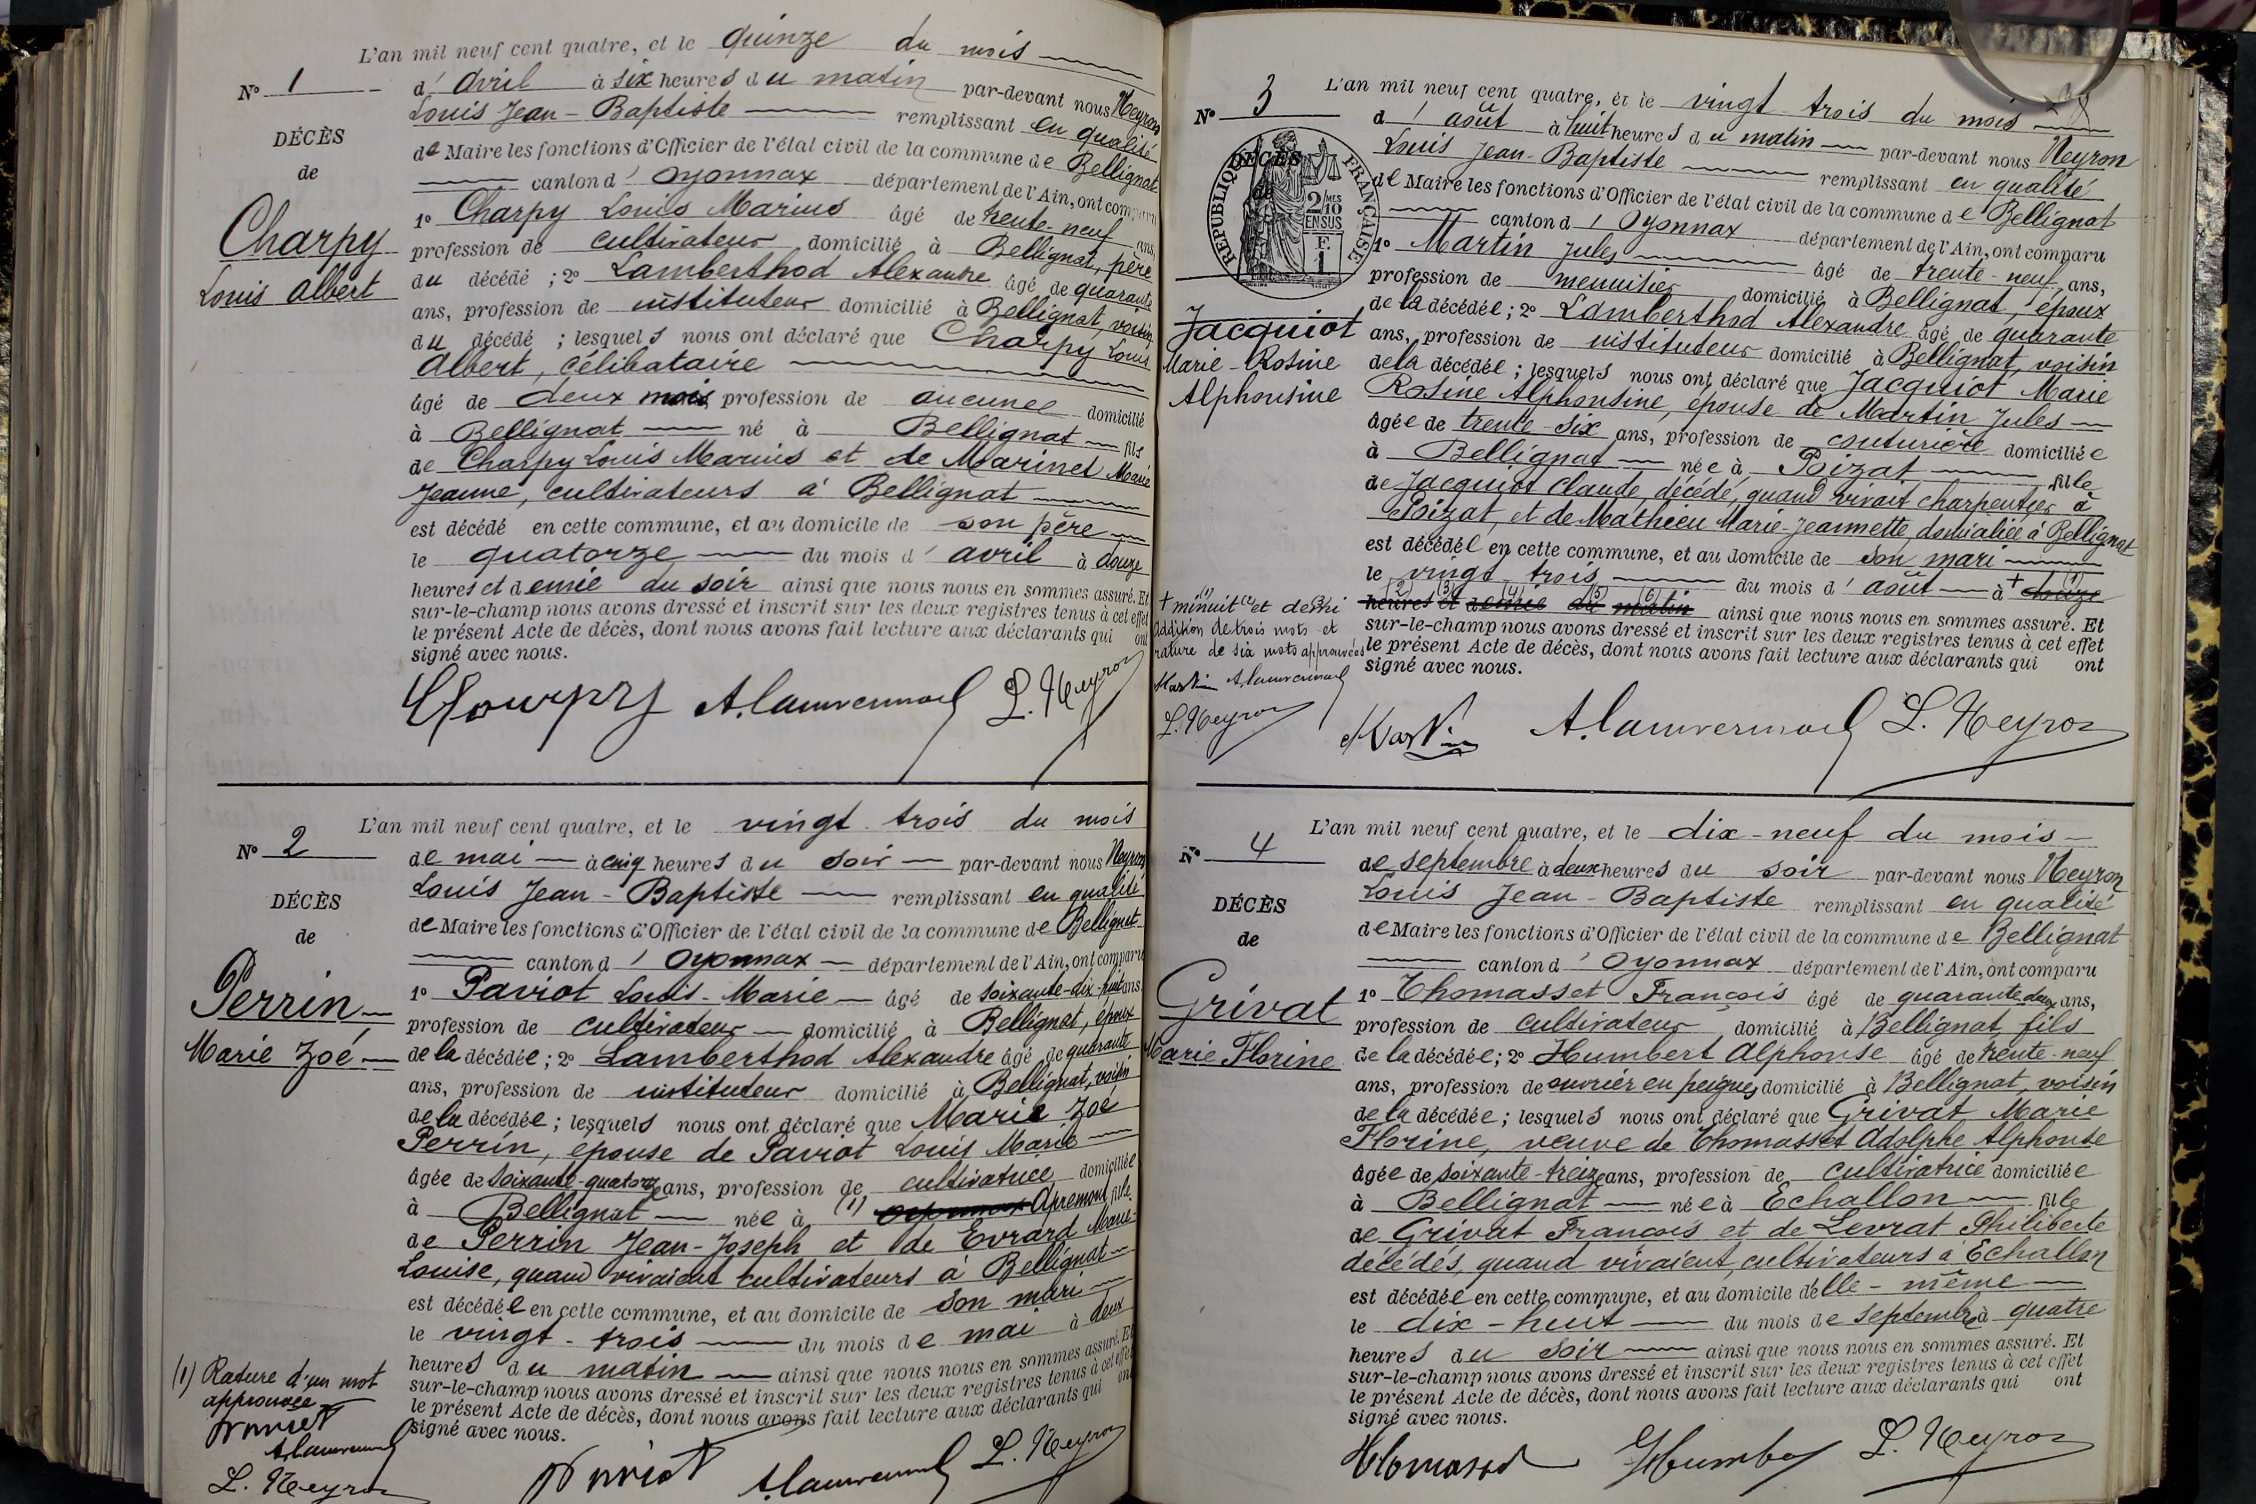 L'an mil neuf cent quatre, et le quinze du mois
N° 1
d'avril à six heures du matin par-devant nous Neyron
Louis Jean-Baptiste remplissant en qualité
DÉCÈS
de Maire les fonctions d'Officier de l'état civil de la commune de Bellignat
de
canton d'Oyonnax département de l'Ain, ont comparu
1° Charpy Louis Marius âgé de trente-neuf ans,
Charpy
profession de cultivateur domicilié à Bellignat, père
Louis Albert
du décédé ; 2° Lamberthod Alexandre âgé de quarante
ans, profession de instituteur domicilié à Bellignat, voisin
du décédé ; lesquels nous ont déclaré que Charpy Louis
Albert, célibataire
âgé de deux mois profession de aucune domicilié
à Bellignat né à Bellignat fils
de Charpy Louis Marius et de Marinet Marie
Jeanne, cultivateurs à Bellignat
est décédé en cette commune, et au domicile de son père
le quatorze du mois d'avril à douze
heures et demie du soir ainsi que nous nous en sommes assuré. Et
sur-le-champ nous avons dressé et inscrit sur les deux registres tenus à cet effet
le présent Acte de décès, dont nous avons fait lecture aux déclarants qui ont
signé avec nous.
L. Neyron
L'an mil neuf cent quatre, et le vingt trois du mois
N° 2
de mai à cinq heures du soir par-devant nous Neyron
Louis Jean-Baptiste remplissant en qualité
DÉCÈS
de Maire les fonctions d'Officier de l'état civil de la commune de Bellignat
de
canton d'Oyonnax département de l'Ain, ont comparu
1° Paviot Louis-Marie âgé de soixante-dix-huit ans
Perrin
profession de cultivateur domicilié à Bellignat, époux
Marie Zoé
de la décédée ; 2° Lamberthod Alexandre âgé de quarante
ans, profession de instituteur domicilié à Bellignat, voisin
de la décédée ; lesquels nous ont déclaré que Marie Zoé
Perrin, épouse de Paviot Louis Marie
âgée de soixante-quatorze ans, profession de cultivatrice domiciliée
à Bellignat née à (1) Oyonnax Apremont fille
de Perrin Jean-Joseph et de Evrard Marie-
Louise, quand vivaient cultivateurs à Bellignat
est décédée en cette commune, et au domicile de son mari
le vingt-trois du mois de mai à deux
heures du matin ainsi que nous nous en sommes assuré. Et
sur-le-champ nous avons dressé et inscrit sur les deux registres tenus à cet effet
le présent Acte de décès, dont nous avons fait lecture aux déclarants qui ont
signé avec nous.
(1) Rature d'un mot
approuvée
L. Neyron
L. Neyron
L'an mil neuf cent quatre, et le vingt trois du mois
N° 3
d'août à huit heures du matin par-devant nous Neyron
Louis Jean-Baptiste remplissant en qualité
DÉCÈS
de
RÉPUBLIQUE FRANÇAISE
2/10 MES
EN SUS
F. 1
de Maire les fonctions d'Officier de l'état civil de la commune de Bellignat
canton d'Oyonnax département de l'Ain, ont comparu
1° Martin Jules âgé de trente-neuf ans,
profession de menuisier domicilié à Bellignat, époux
Jacquiot
Marie-Rosine
Alphonsine
de la décédée ; 2° Lamberthod Alexandre âgé de quarante
ans, profession de instituteur domicilié à Bellignat, voisin
de la décédée ; lesquels nous ont déclaré que Jacquiot Marie
Rosine Alphonsine, épouse de Martin Jules
âgée de trente-six ans, profession de couturière domiciliée
à Bellignat née à Poizat fille
de Jacquiot Claude, décédé, quand vivait charpentier à
Poizat, et de Mathieu Marie-Jeannette, domiciliée à Bellignat
est décédée en cette commune, et au domicile de son mari
le vingt trois du mois d'août à + (1) douze
(2) heures (3) et (4) demie (5) du (6) matin ainsi que nous nous en sommes assuré. Et
sur-le-champ nous avons dressé et inscrit sur les deux registres tenus à cet effet
le présent Acte de décès, dont nous avons fait lecture aux déclarants qui ont
signé avec nous.
+ minuit et demi
addition de trois mots et
rature de six mots approuvées
Martin
L. Neyron
Martin L. Neyron
L'an mil neuf cent quatre, et le dix-neuf du mois
N° 4
de septembre à deux heures du soir par-devant nous Neyron
Louis Jean-Baptiste remplissant en qualité
DÉCÈS
de Maire les fonctions d'Officier de l'état civil de la commune de Bellignat
de
canton d'Oyonnax département de l'Ain, ont comparu
Grivat
Marie Florine
1° Thomasset François âgé de quarante deux ans,
profession de cultivateur domicilié à Bellignat, fils
de la décédée ; 2° Humbert Alphonse âgé de trente-neuf
ans, profession de ouvrier en peignes domicilié à Bellignat, voisin
de la décédée ; lesquels nous ont déclaré que Grivat Marie
Florine, veuve de Thomasset Adolphe Alphonse
âgée de soixante-treize ans, profession de cultivatrice domiciliée
à Bellignat née à Echallon fille
de Grivat François et de Levrat Philiberte
décédés, quand vivaient, cultivateurs à Echallon
est décédée en cette commune, et au domicile d'elle-même
le dix-huit du mois de septembre à quatre
heures du soir ainsi que nous nous en sommes assuré. Et
sur-le-champ nous avons dressé et inscrit sur les deux registres tenus à cet effet
le présent Acte de décès, dont nous avons fait lecture aux déclarants qui ont
signé avec nous.
L. Neyron